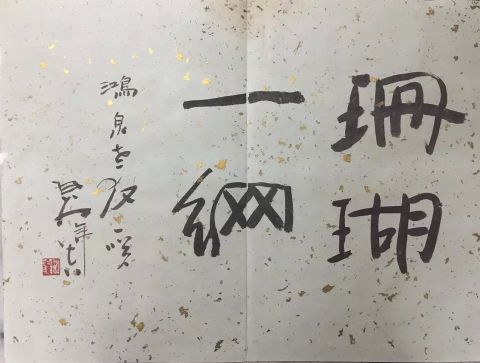 珊瑚
一網
鴻泉老友一咲